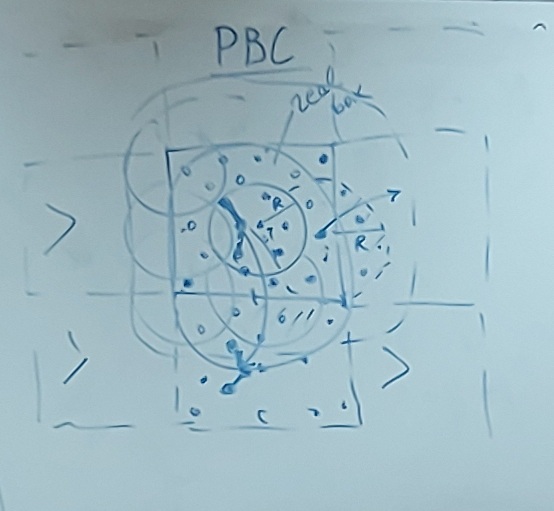 PBC
real
box
R
R